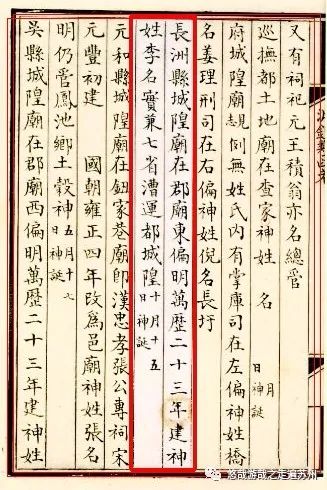 又有祠祀元王積翁亦名總管
巡撫都土地廟在查家神姓　名　月日神誕
府城隍廟　倒無姓氏内有掌庫司在左偏神姓橋
名姜理刑司在右偏神姓倪名長圩
長洲縣城隍廟在郡廟東偏明萬歷二十三年建神
姓李名實兼七省漕運都城隍十月十五日神誕
元和縣城隍廟在鈕家巷廟即漢忠孝張公專祠宋
元豐初建　國朝雍正四年改為邑廟神姓張名
明仍管鳳池鄉土穀神五月十七日神誕
吳縣城隍廟在郡廟西偏明萬歷二十三年建神姓
悠哉游哉之走進苏州